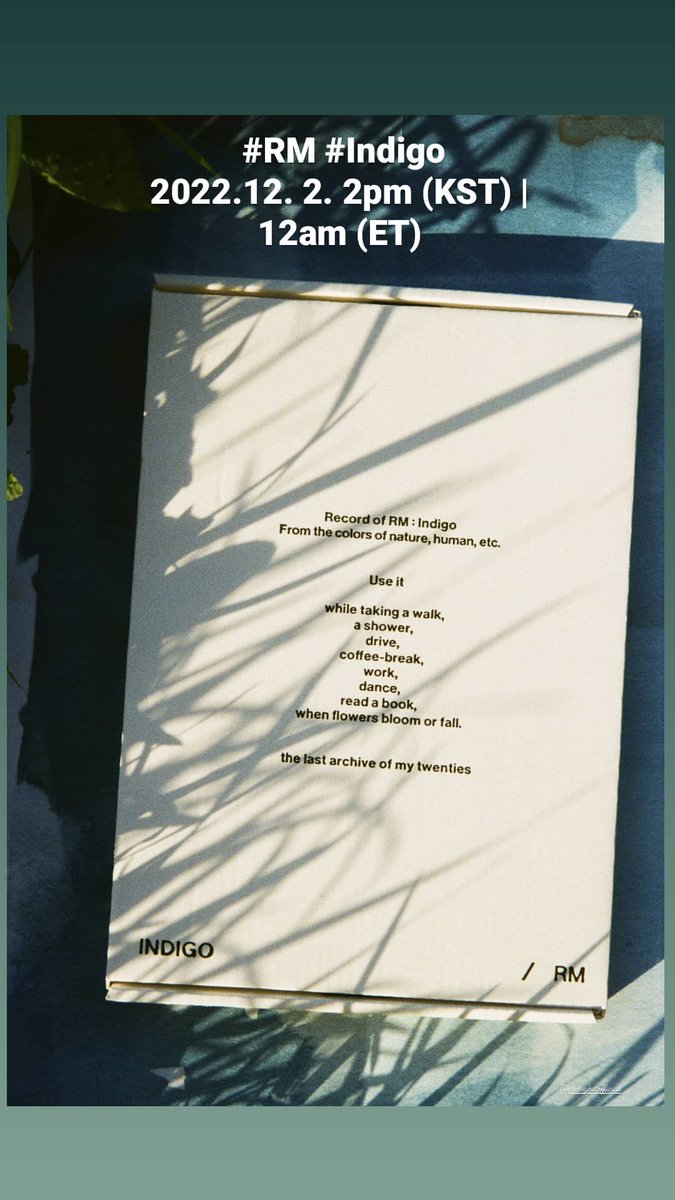 #RM #Indigo
2022.12. 2. 2pm (KST) |
12am (ET)
Record of RM : Indigo
From the colors of nature, human, etc.
Use it
while taking a walk,
a shower,
drive,
coffee-break,
work,
dance,
read a book,
when flowers bloom or fall.
the last archive of my twenties
INDIGO
/ RM